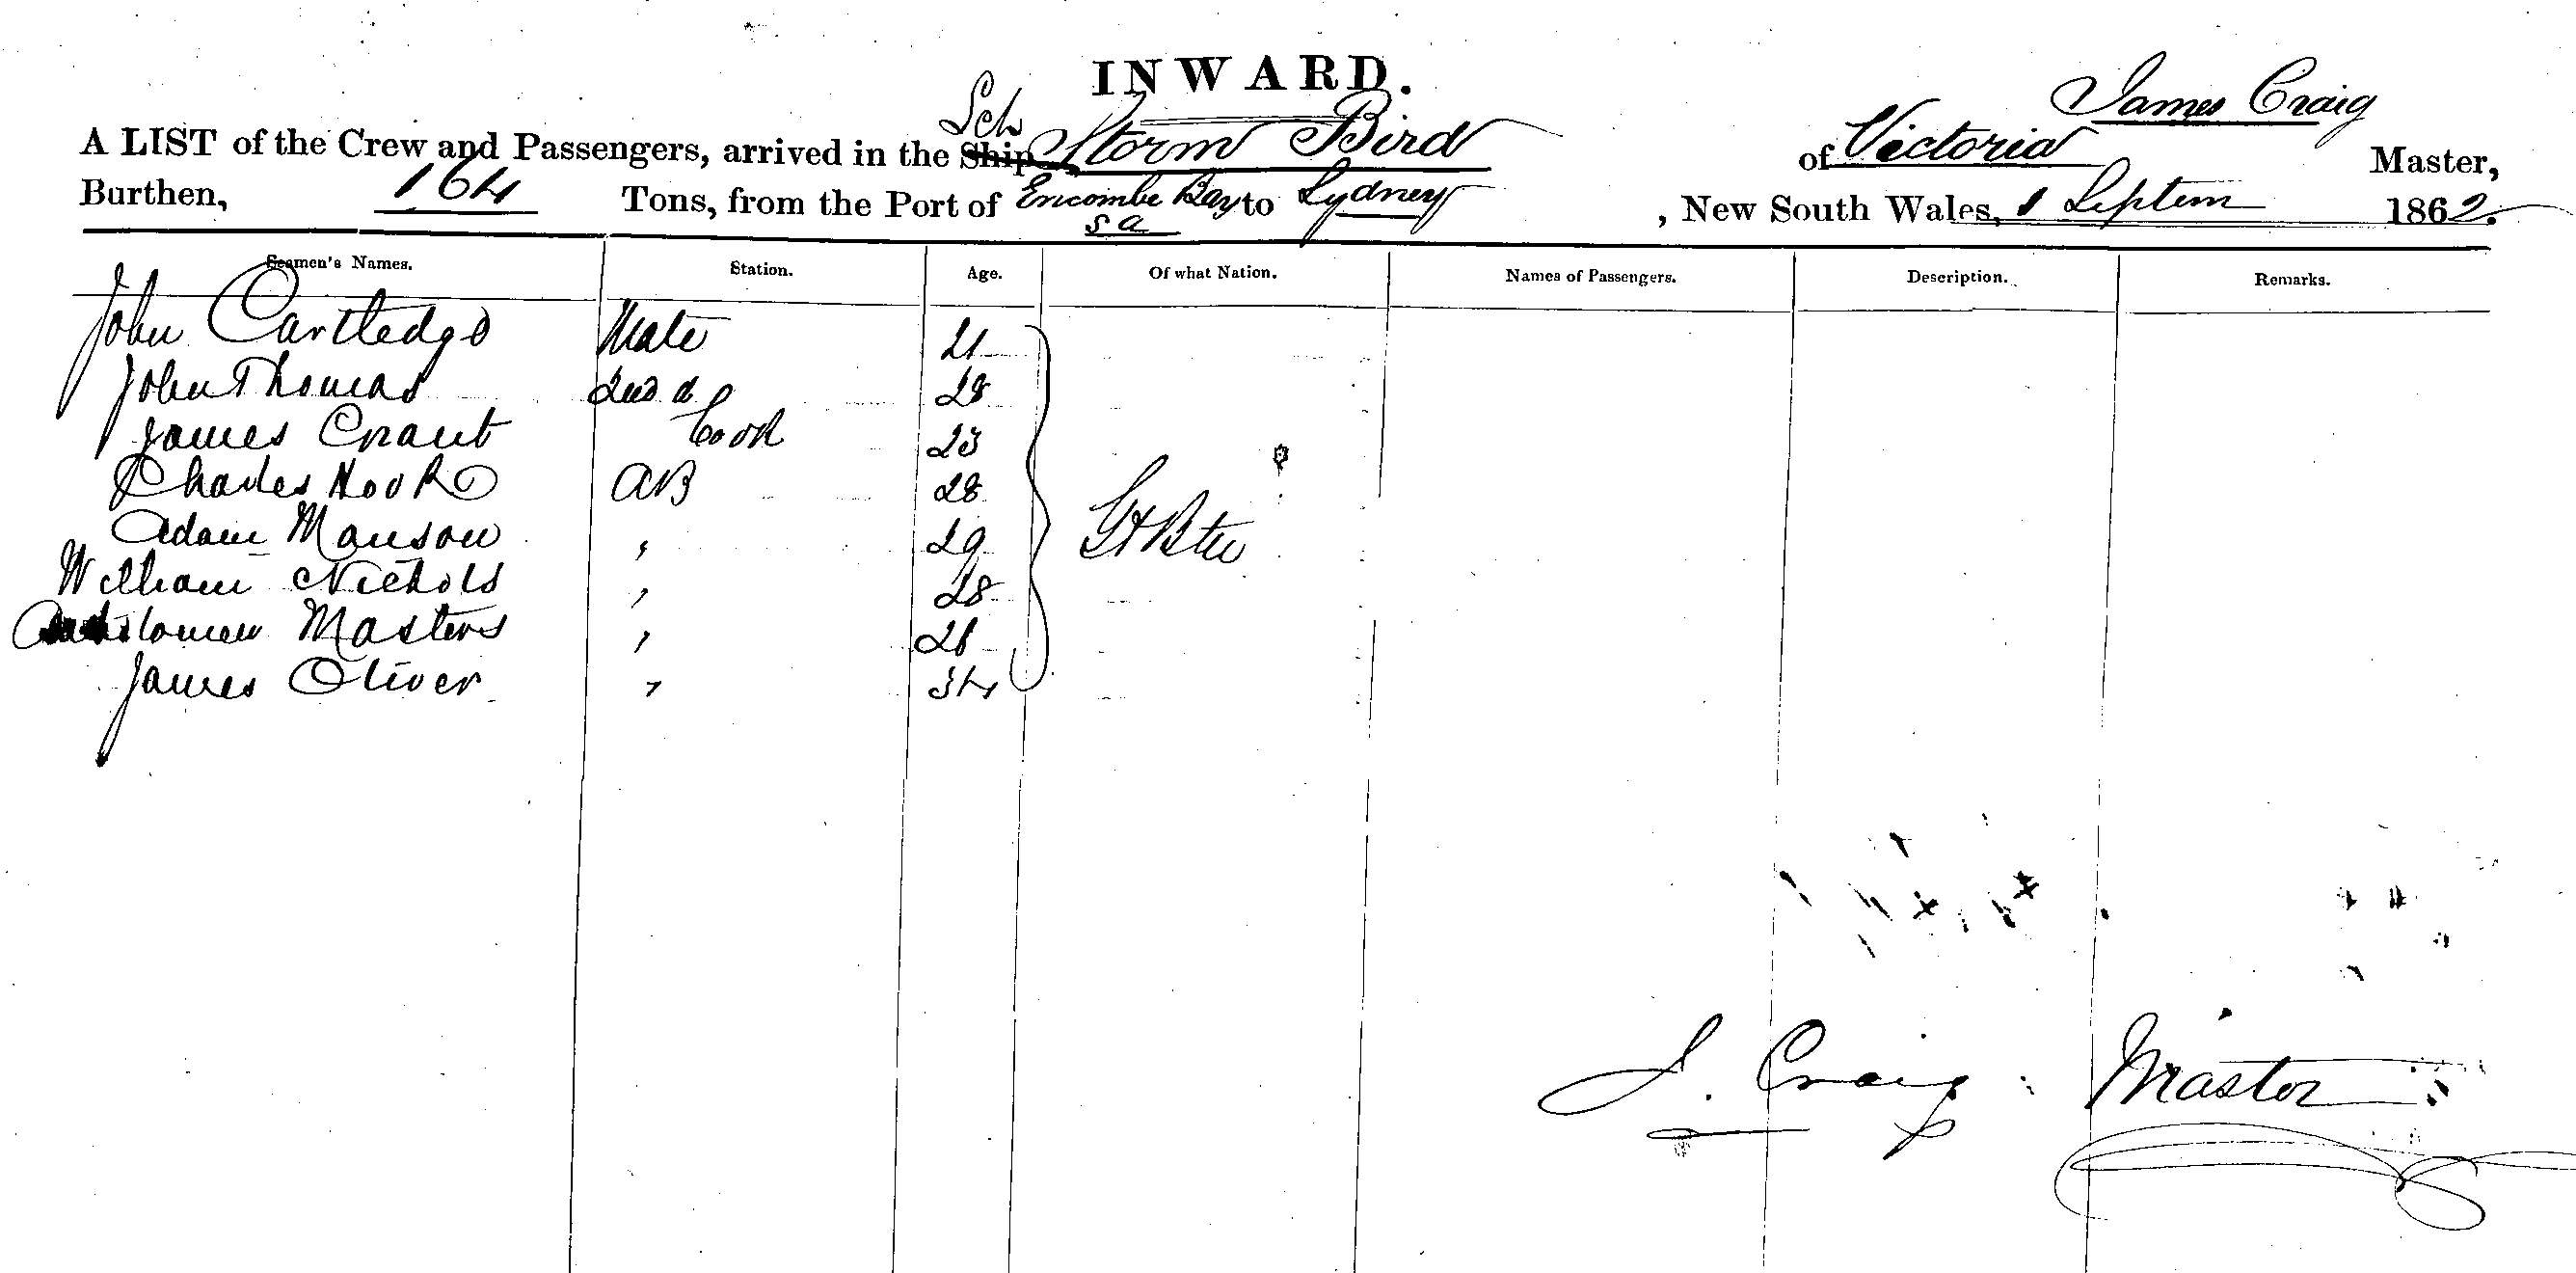 INWARD.
Sch James Craig
A LIST of the Crew and Passengers, arrived in the Ship Storm Bird of Victoria Master,
Burthen, 164 Tons, from the Port of Encombe Bay to Sydney, New South Wales, 1 Septem 1862.
S a
Seamen's Names. Station. Age. Of what Nation. Names of Passengers. Description. Remarks.
John Cartledge Mate 21
John Thomas 2nd d 28
James Grant Cook 23
Charles Hook AB 28
Adam Manson " 29 Gt Btn
William Nichols " 28
Masters "
James Oliver " 34
J. Craig Master